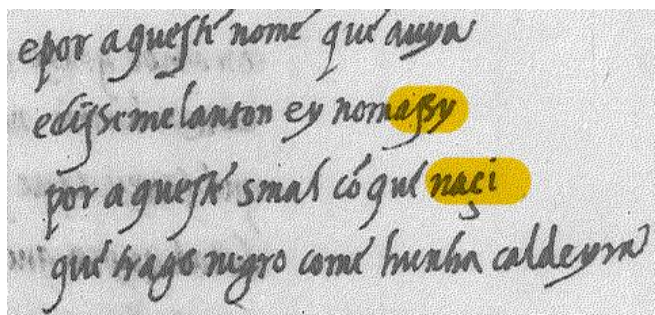 epor aqueste nome que auya
edisseme lanton ey nomassy
por aqueste smal cõ que naçi
que trago negro come hunha caldeyra